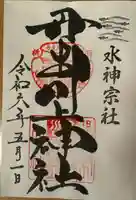 水神宗社
丹生川上神社
令和六年五月一日